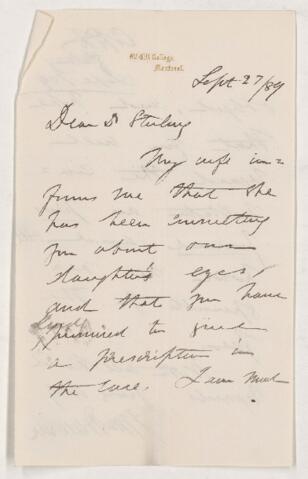 McGill College,
Montreal.
Sept 27/89
Dear Dr Stirling
My wife in=
forms me that she
has been consulting
you about our
daughter's eyes,
and that you have
promised to
a prescription in
the case. I am much